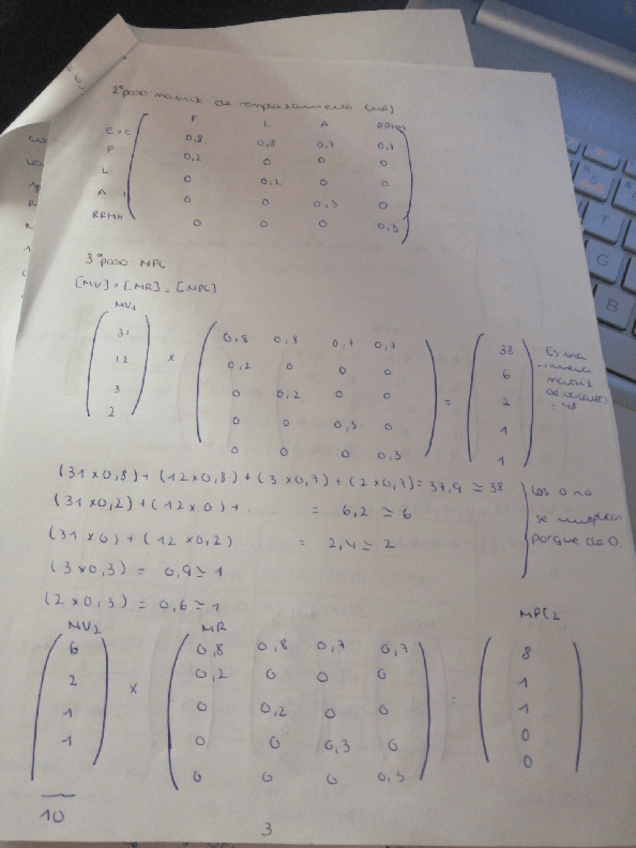 2º paso: matriz de emplazamiento (MR)
F L A RRHH
E.C 0,8 0,8 0,7 0,7
F 0,2 0 0 0
L 0 0,2 0 0
A 0 0 0,3 0
RRHH 0 0 0 0,3
3º paso: MPC
[MV] × [MR] = [MPC]
MV1
31 0,8 0,8 0,7 0,7 38
12 × 0,2 0 0 0 6
3 0 0,2 0 0 = 2
2 0 0 0,3 0 1
0 0 0 0,3 1
Es una
matriz
de vacantes
= 48
(31 × 0,8) + (12 × 0,8) + (3 × 0,7) + (2 × 0,7) = 37,9 ≃ 38
(31 × 0,2) + (12 × 0) + ........ = 6,2 ≃ 6
(31 × 0) + (12 × 0,2) ........ = 2,4 ≃ 2
(3 × 0,3) = 0,9 ≃ 1
(2 × 0,3) = 0,6 ≃ 1
Los 0 no
se multiplican
porque da 0.
MV2 MR MPC2
6 0,8 0,8 0,7 0,7 8
2 × 0,2 0 0 0 = 1
1 0 0,2 0 0 1
1 0 0 0,3 0 0
0 0 0 0,3 0
10
3